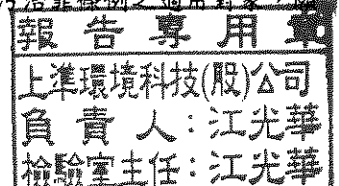 報告專用章
上準環境科技(股)公司
負責人：江光華
檢驗室主任：江光華